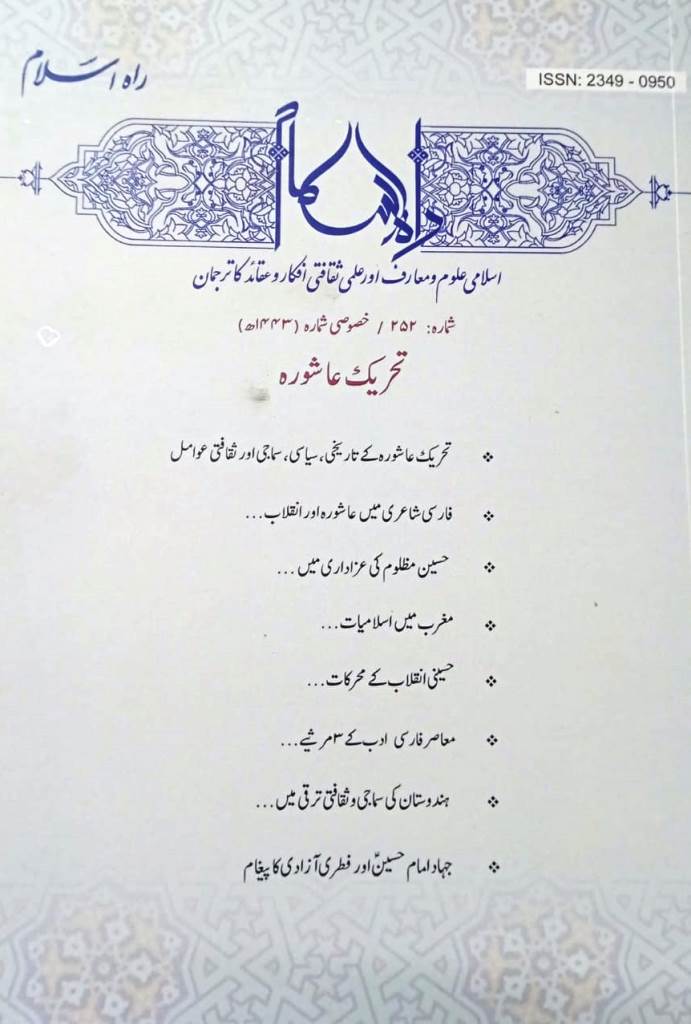 راہ اسلام
ISSN: 2349 - 0950
راہ اسلام
اسلامی علوم و معارف اور علمی ثقافتی افکار و عقائد کا ترجمان
شمارہ: ۲۵۲ / خصوصی شمارہ (۱۴۴۳ھ)
تحریک عاشورہ
❖ تحریک عاشورہ کے تاریخی، سیاسی، سماجی اور ثقافتی عوامل
❖ فارسی شاعری میں عاشورہ اور انقلاب...
❖ حسین مظلوم کی عزاداری میں...
❖ مغرب میں اسلامیات...
❖ حسینی انقلاب کے محرکات...
❖ معاصر فارسی ادب کے ۳ مرثیے...
❖ ہندوستان کی سماجی و ثقافتی ترقی میں...
❖ جہاد امام حسینؑ اور فطری آزادی کا پیغام